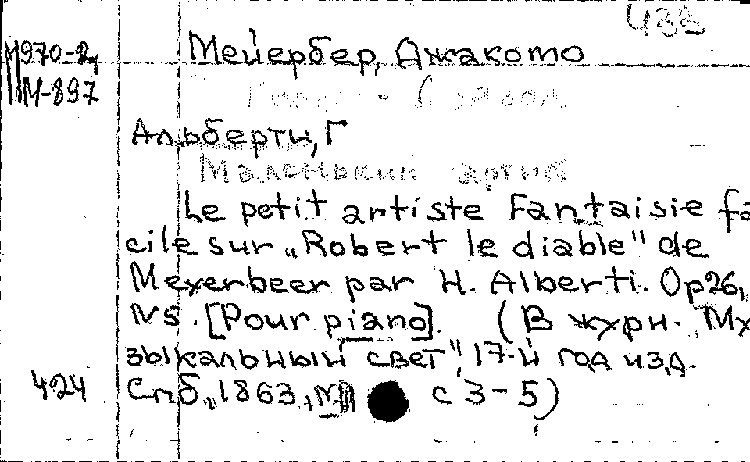 433
М970-2 Мейербер, Джакомо
М-897
Альберти, Г
Маленький артист
Le petit artiste Fantaisie fa-
cile sur „Robert le diable" de
Meyerbeer par H. Alberti. Op 26,
N5. [Pour piano]. (В журн. „Му
зыкальный свет", 17-й год изд.
424 Спб., 1863, с 3-5)